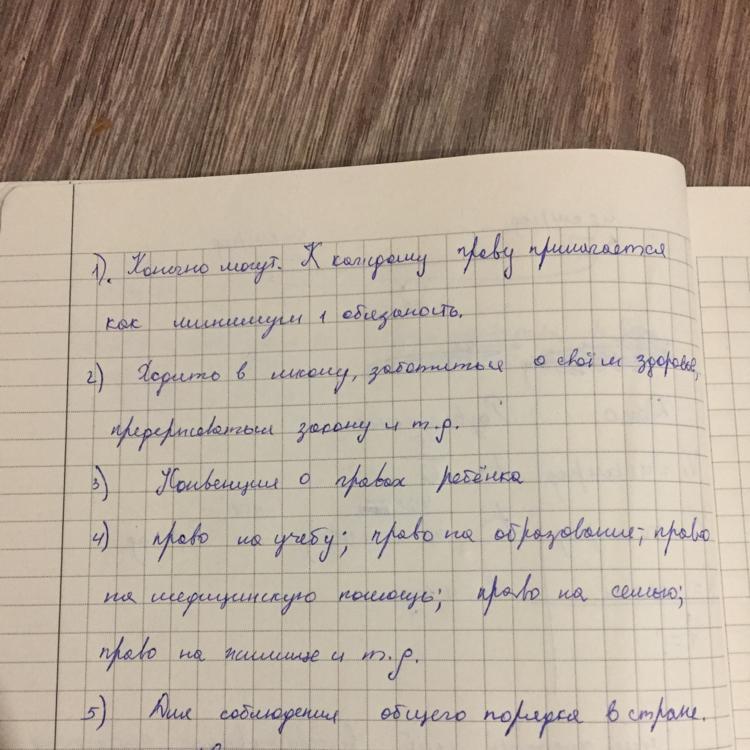 1). Конечно могут. К каждому праву прилагается
как минимум 1 обязаность.
2) Ходить в школу, заботиться о своём здоровье,
предерживаться закону и т.д.
3) Конвенция о правах ребёнка
4) право на учебу; право на образование; право
на медицинскую помощь; право на семью;
право на жилище и т.д.
5) Для соблюдения общего порядка в стране.